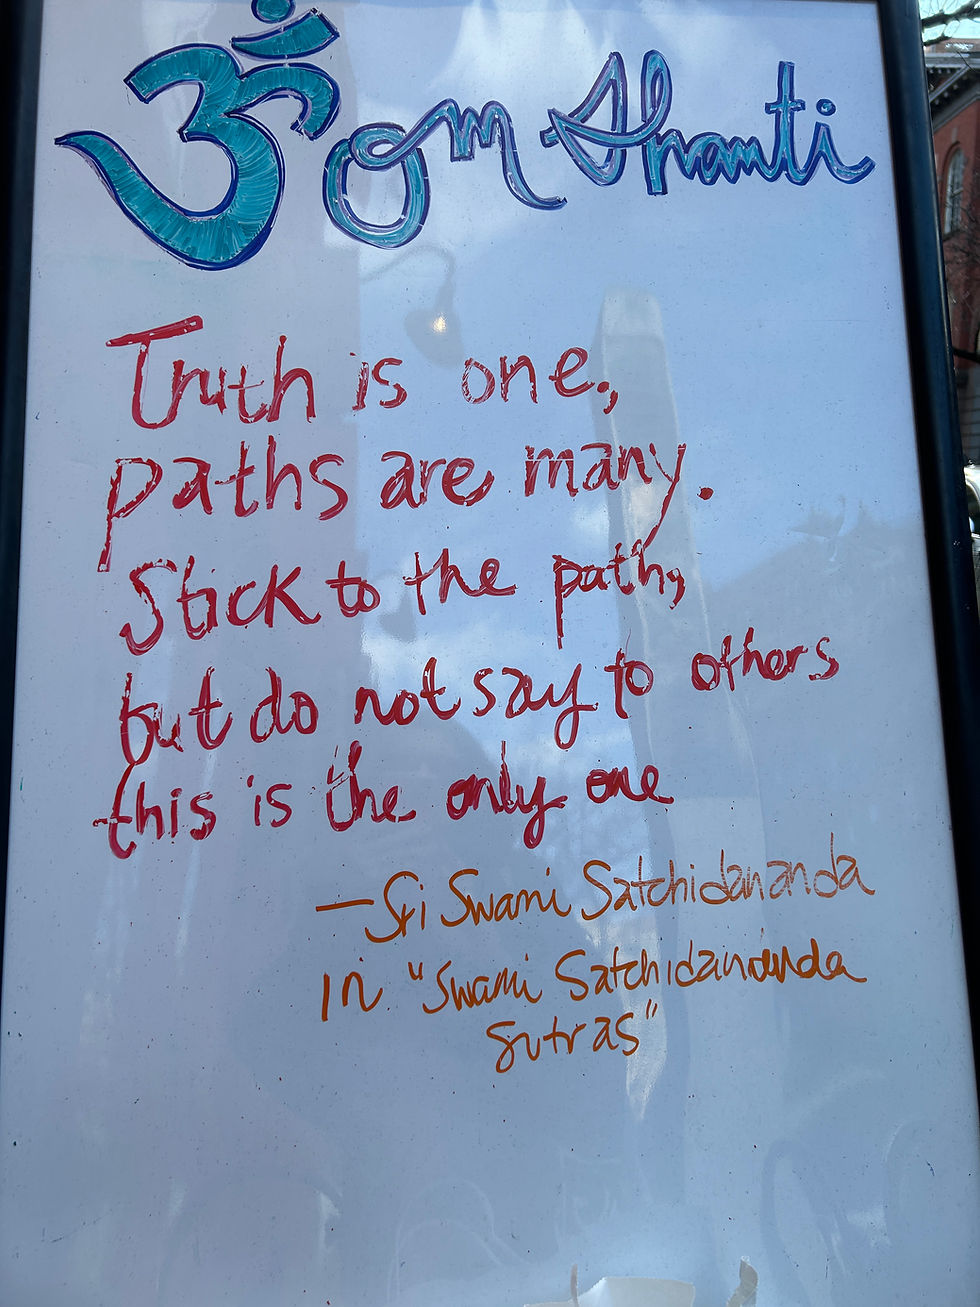 ॐ Om Shanti
Truth is one,
paths are many.
Stick to the path,
but do not say to others
this is the only one
— Sri Swami Satchidananda
in "Swami Satchidananda
Sutras"